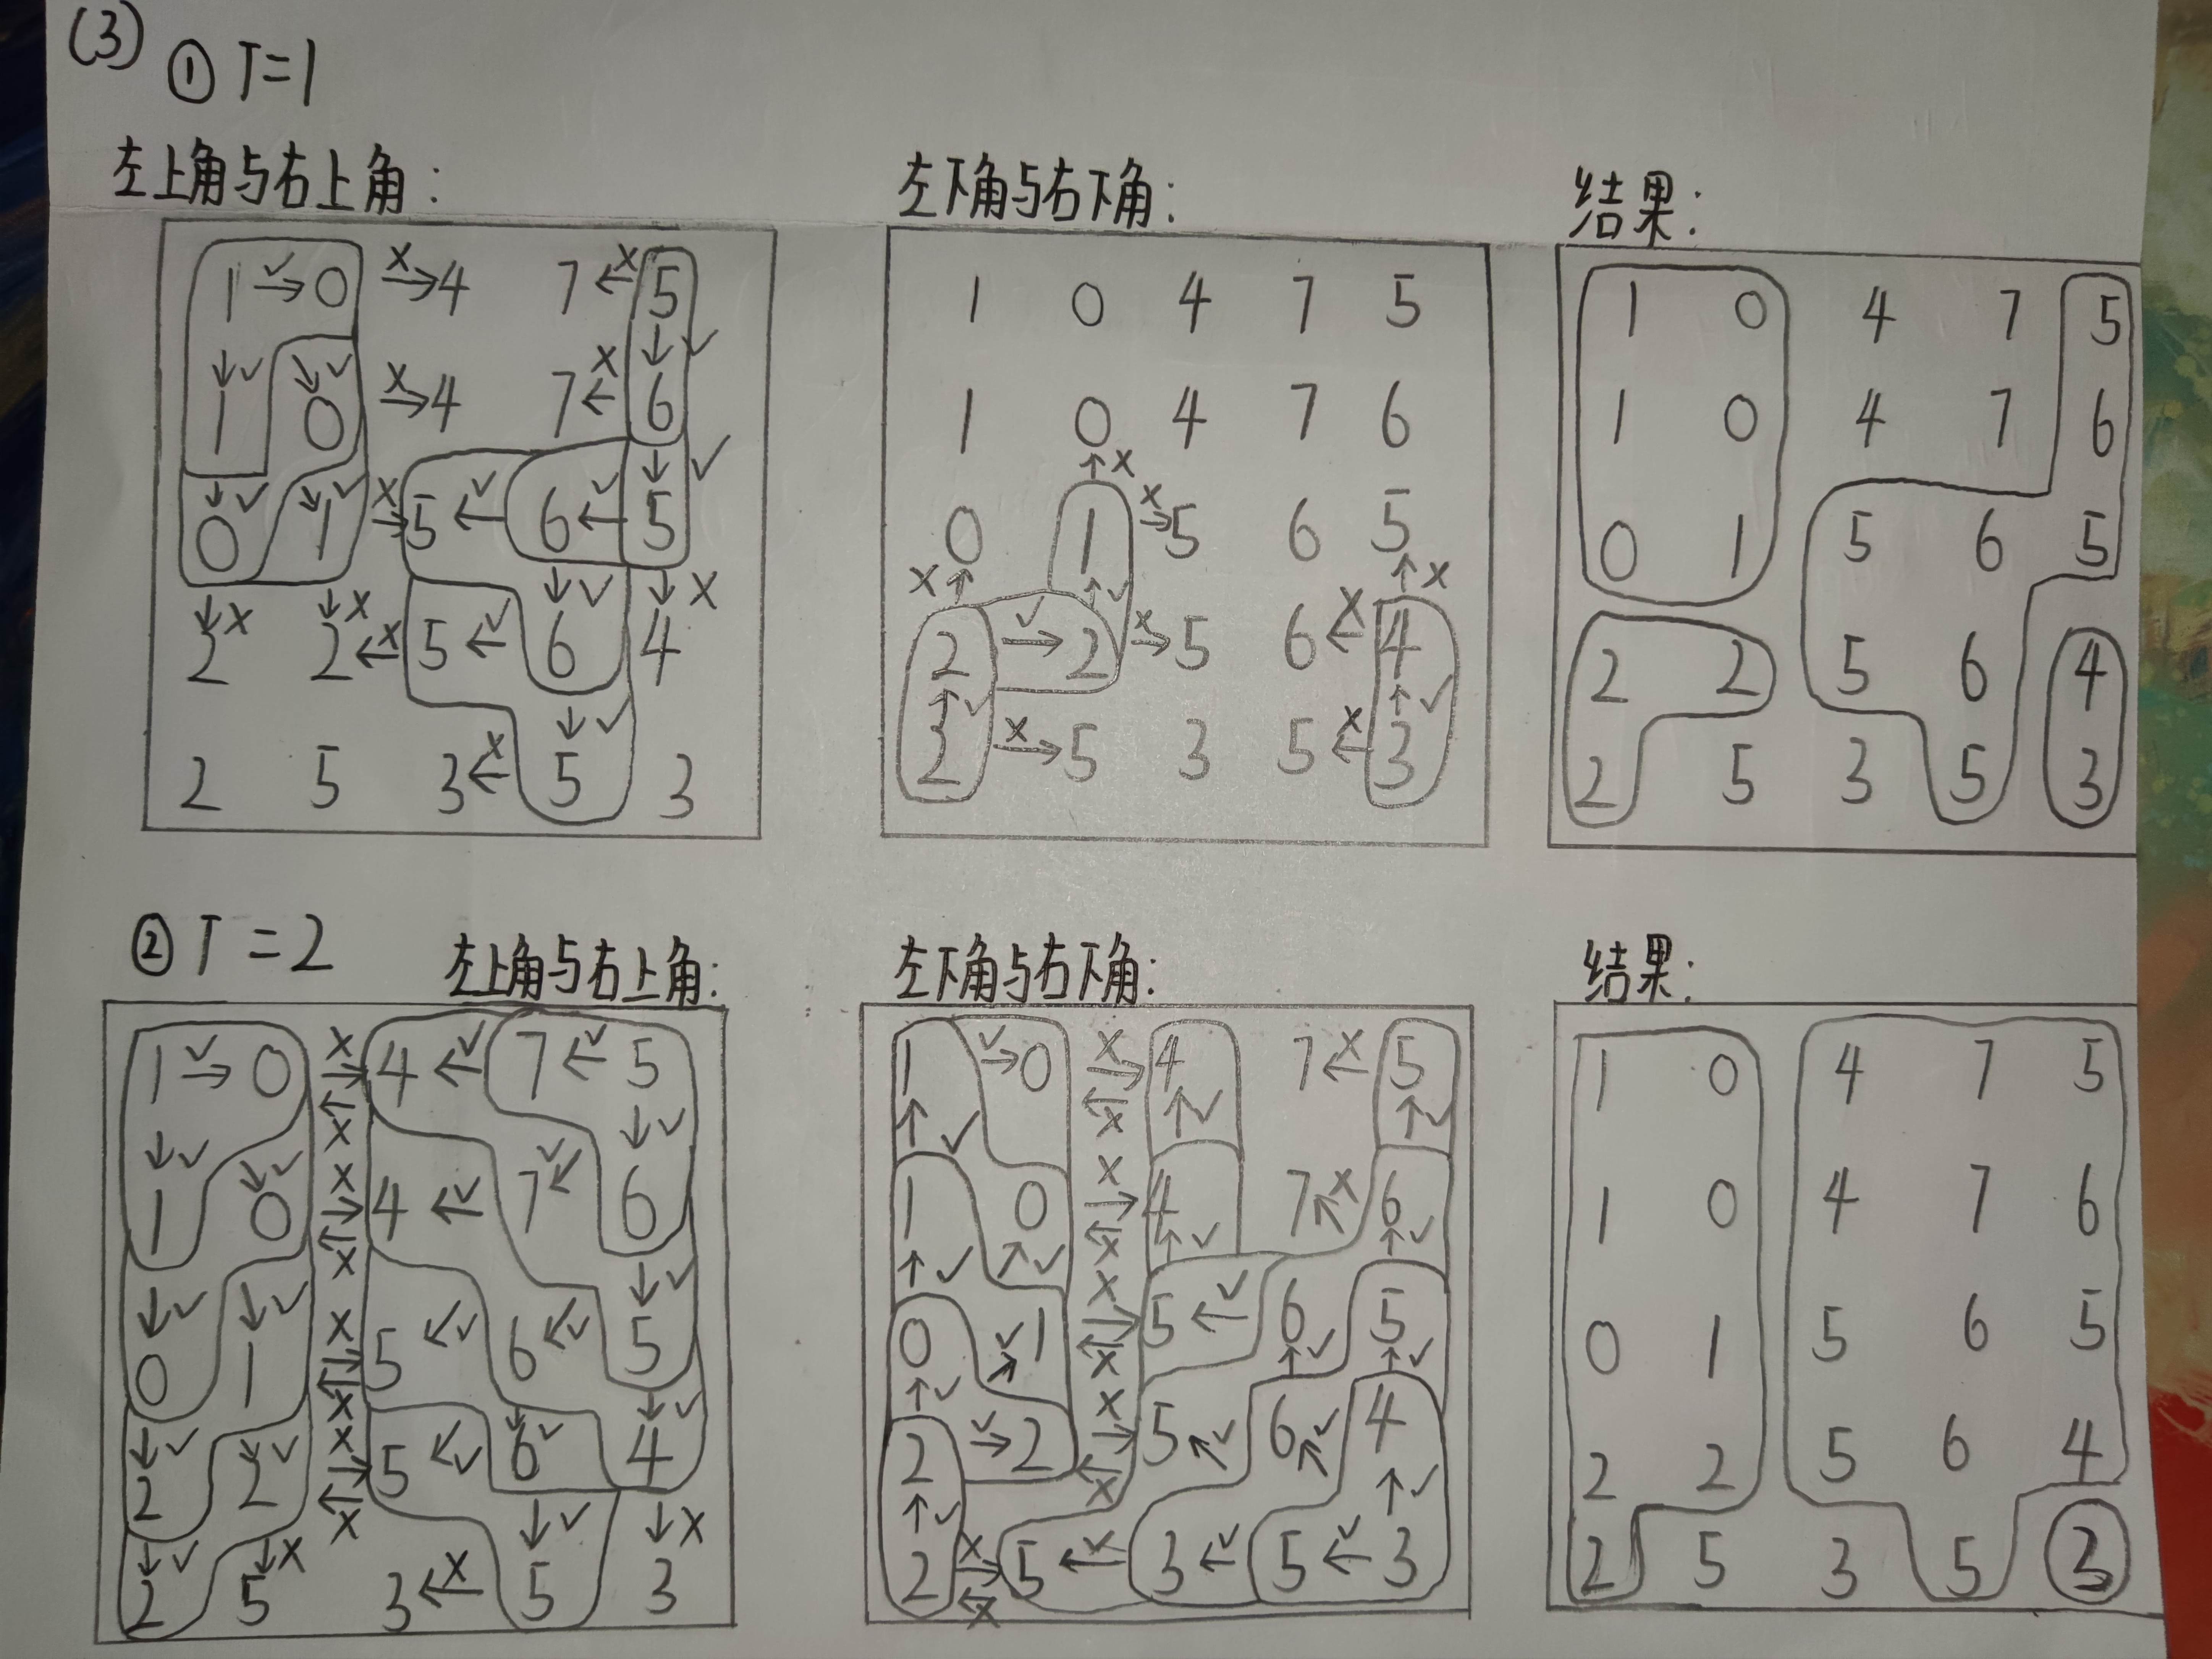 (3)
① T=1
左上角与右上角:
左下角与右下角:
结果:
1 → ✓ 0 → × 4 7 ← × 5
↓ ✓ ↘ ✓ ↓ ✓
1 0 → × 4 7 ← × 6
↓ ✓ ↘ ✓ ↓ ✓
0 1 → × 5 ← ✓ 6 ← ✓ 5
↓ × ↓ × ↓ ✓ ↓ ×
2 2 ← × 5 ← ✓ 6 4
↓ ✓
2 5 3 ← × 5 3
1 0 4 7 5
1 0 4 7 6
↑ ×
0 1 → × 5 6 5
↑ × ↑ ✓ ↑ ×
2 → ✓ 2 → × 5 6 ← × 4
↑ ✓ ↑ ✓
2 → × 5 3 5 ← × 3
1 0 4 7 5
1 0 4 7 6
0 1 5 6 5
2 2 5 6 4
2 5 3 5 3
② T=2
左上角与右上角:
左下角与右下角:
结果:
1 → ✓ 0 → × ← × 4 ← ✓ 7 ← ✓ 5
↓ ✓ ↘ ✓ ↙ ✓ ↓ ✓
1 0 → × ← × 4 ← ✓ 7 6
↓ ✓ ↓ ✓ ↓ ✓
0 1 → × ← × 5 ↙ ✓ 6 ↙ ✓ 5
↓ ✓ ↘ ✓ ↓ ✓ ↓ ✓
2 2 → × ← × 5 ↙ ✓ 6 4
↓ ✓ ↓ × ↓ ✓ ↓ ×
2 5 3 ← × 5 3
1 → ✓ 0 → × ← × 4 7 ← × 5
↑ ✓ ↑ ✓ ↑ ✓
1 0 → × ← × 4 7 ↖ × 6
↑ ✓ ↗ ✓ ↑ ✓ ↑ ✓
0 ↗ ✓ 1 → × ← × 5 ← ✓ 6 5
↑ ✓ ↑ ✓ ↑ ✓
2 → ✓ 2 → × ← × 5 ↖ ✓ 6 ↖ ✓ 4
↑ ✓ ↑ ✓
2 → × ← × 5 ← ✓ 3 ← ✓ 5 ← ✓ 3
1 0 4 7 5
1 0 4 7 6
0 1 5 6 5
2 2 5 6 4
2 5 3 5 3